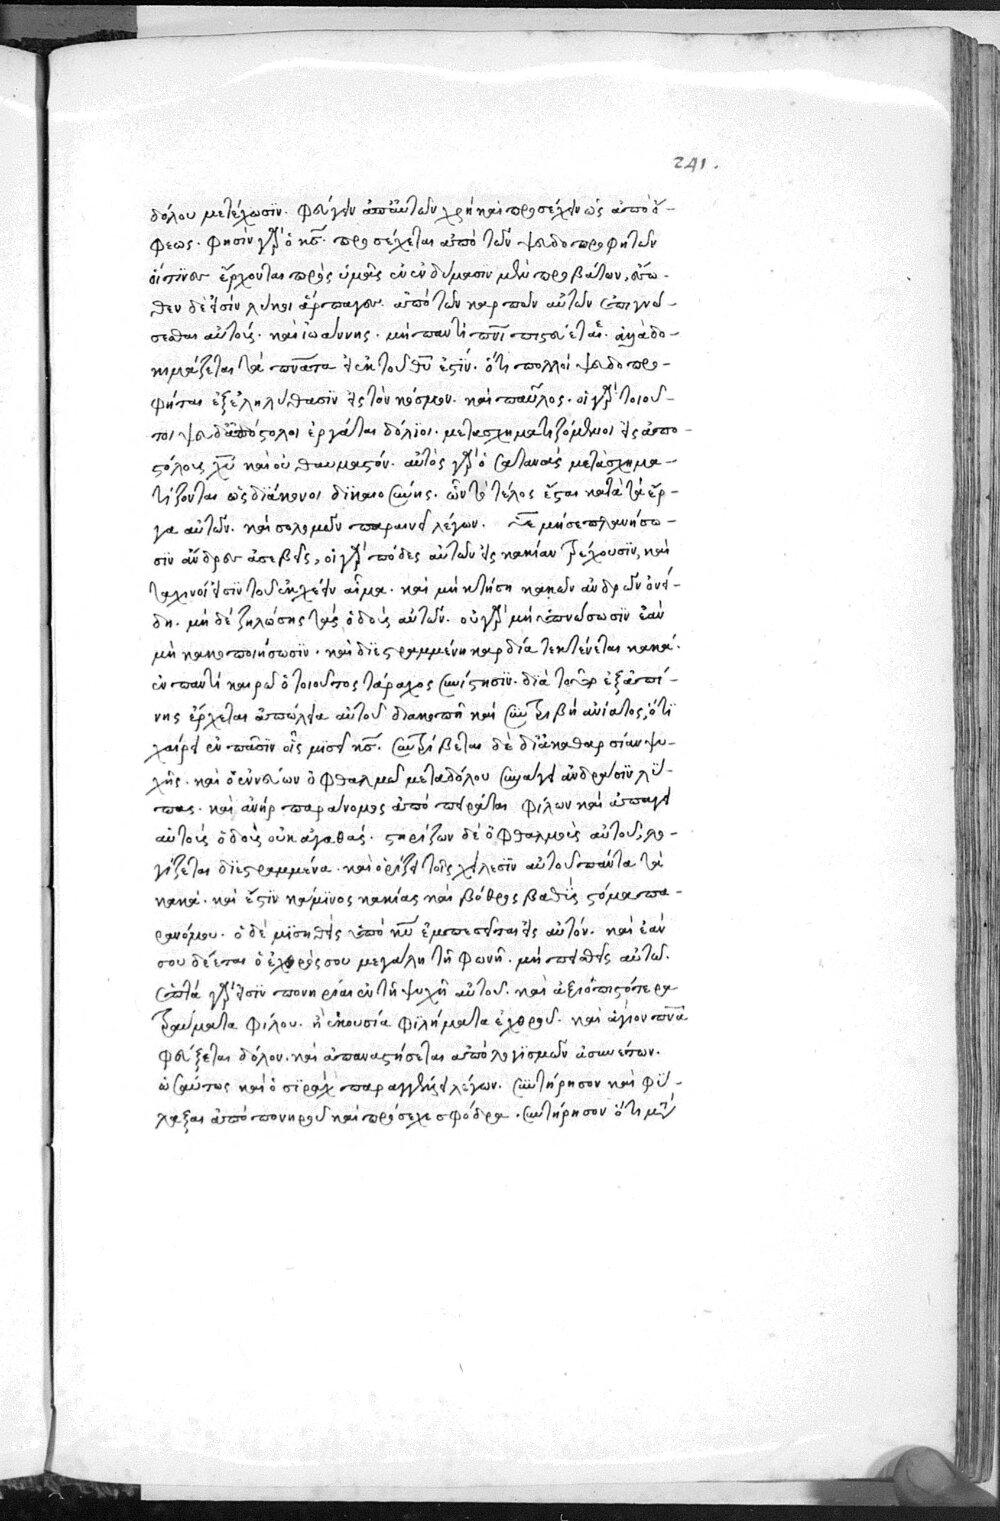 241.
δόλου μετέχωσϊν. φεύγειν ἀπ' αὐτῶν χρὴ καὶ προσέχειν ὡς ἀπὸ ὄ-
φεως. φησὶν γὰρ ὁ κς̄. προσέχεται ἀπὸ τῶν ψευδοπροφητῶν
οἵτϊνες ἔρχονται πρὸς ὑμᾶς ἐν ἐνδύμασιν μὲν προβάτων, ἔσω-
θεν δὲ εἰσὶν λύκοι ἅρπαγες. ἀπὸ τῶν καρπῶν αὐτῶν ἐπιγνώ-
σεσθαι αὐτούς. καὶ ἰωάννης. μὴ παντὶ πνῑ πιστεύεται. ἀλλὰ δο-
κιμάζεται τὰ πνᾱτα εἰ ἐκ τοῦ θῡ ἐστίν. ὅτι πολλοὶ ψευδοπρο-
φῆται ἐξεληλύθασϊν εἰς τὸν κόσμον. καὶ παῦλος. οἱ γὰρ τοιοῦ-
τοι ψευδαπόστολοι ἐργάται δόλϊοι. μετασχηματιζόμενοι εἰς ἀπο-
στόλους χῡ καὶ οὐ θαυμαστόν. αὐτὸς γὰρ ὁ σατανᾶς μετασχημα-
τίζονται ὡς δϊάκονοι δϊκαιοσύνης. ὧν τὸ τέλος ἔσται κατὰ τὰ ἔρ-
γα αὐτῶν. καὶ σολομῶν παραινεῖ λέγων. υἱὲ μή σε πλανήσω-
σϊν ἄνδρες ἀσεβεῖς, οἱ γὰρ πόδες αὐτῶν εἰς κακίαν τρέχουσϊν, καὶ
ταχινοὶ εἰσϊν τοῦ ἐκχέειν αἷμα. καὶ μὴ κτήση κακῶν ἀνδρῶν ὀνεί-
δη. μὴ δὲ ζηλώσης τὰς ὁδοὺς αὐτῶν. οὐ γὰρ μὴ ὑπνώσωσϊν ἐὰν
μὴ κακοποιήσωσϊν. καὶ δϊεστραμμένη καρδία τεκτένεται κακά.
ἐν παντὶ καιρῶ ὁ τοιοῦτος τάραχος συνίστησϊν. δϊὰ τοῦτο ἐξαπί-
νης ἔρχεται ἀπώλεια αὐτοῦ διακοπὴ καὶ συντριβὴ ἀνίατος, ὅτϊ
χαίρει ἐν πᾶσϊν οἷς μϊσεῖ κς̄. συντρίβεται δὲ δϊ' ἀκαθαρσίαν ψυ-
χῆς. καὶ ὁ ἐννεύων ὀφθαλμῶ μετὰ δόλου συνάγει ἀνδράσϊν λύ-
πας. καὶ ἀνὴρ παράνομος ἀποπειρᾶται φίλων καὶ ἀπάγει
αὐτοὺς ὁδοὺς οὐκ ἀγαθάς. στηρίζων δὲ ὀφθαλμοὺς αὐτοῦ, λο-
γίζεται δϊεστραμμένα. καὶ ὁρίζει τοῖς χείλεσϊν αὐτοῦ πάντα τὰ
κακά. καὶ ἔστϊν κάμϊνος κακίας καὶ βόθρος βαθὺς στόμα πα-
ρανόμου. ὁ δὲ μϊσηθεὶς ὑπὸ κῡ ἐμπεσεῖται εἰς αὐτόν. καὶ ἐάν
σου δέεται ὁ ἐχθρός σου μεγάλη τῆ φωνῆ. μὴ πεισθεὶς αὐτῶ.
ἑπτὰ γὰρ εἰσϊν πονηρίαι ἐν τῆ ψυχῆ αὐτοῦ. καὶ ἀξιοπιστότερα
τραύματα φίλου. ἢ ἑκούσια φιλήματα ἐχθροῦ. καὶ ἅγιον πνᾱ
φεύξεται δόλον. καὶ ἀπαναστήσεται ἀπὸ λογϊσμῶν ἀσυνέτων.
ὡσαύτως καὶ ὁ σϊρὰχ παραγγέλλει λέγων. συντήρησον καὶ φύ-
λαξαι ἀπὸ πονηροῦ καὶ πρόσεχε σφόδρα. συντήρησον ὅτι μετὰ